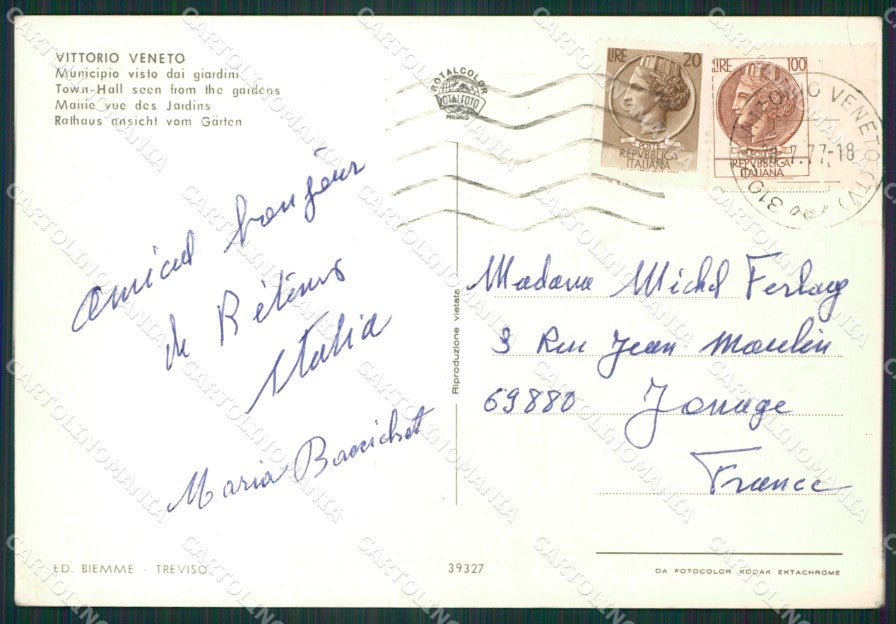 VITTORIO VENETO
Municipio visto dai giardini
Town-Hall seen from the gardens
Mairie vue des Jardins
Rathaus ansicht vom Gärten
ROTALCOLOR
ROTALFOTO
MILANO
LIRE 20
POSTE
REPVBBLICA
ITALIANA
LIRE 100
POSTE
REPVBBLICA
ITALIANA
VITTORIO VENETO (TV)
7.77-18
310
amical bonjour
de
Italia
Maria
Madame Michel
3 Rue Jean Moulin
69880 Jonage
France
Riproduzione vietata
ED. BIEMME - TREVISO
39327
DA FOTOCOLOR KODAK EKTACHROME
CARTOLINOMANIA